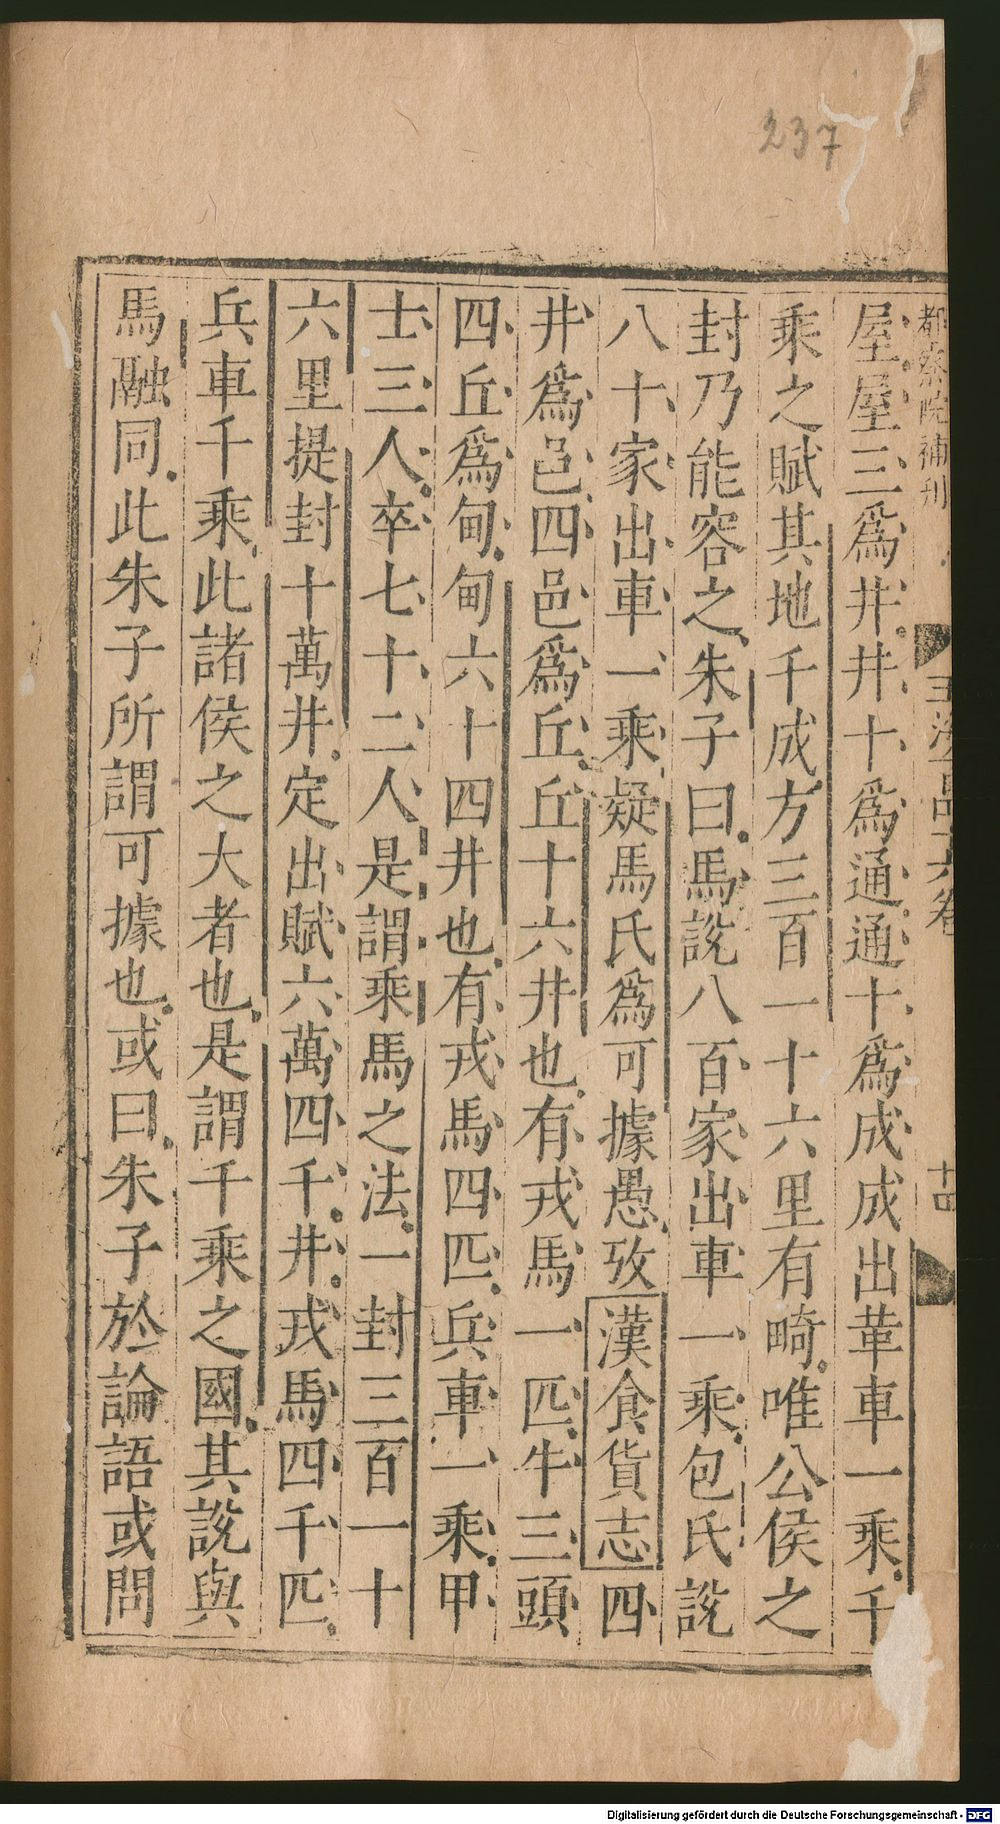 237
都察院補刊
十四
屋屋三爲井井十爲通通十爲成成出革車一乘千
乘之賦其地千成方三百一十六里有畸唯公侯之
封乃能容之朱子曰馬說八百家出車一乘包氏說
八十家出車一乘疑馬氏爲可據愚攷漢食貨志四
井爲邑四邑爲丘丘十六井也有戎馬一匹牛三頭
四丘爲甸甸六十四井也有戎馬四匹兵車一乘甲
士三人卒七十二人是謂乘馬之法一封三百一十
六里提封十萬井定出賦六萬四千井戎馬四千匹
兵車千乘此諸侯之大者也是謂千乘之國其說與
馬融同此朱子所謂可據也或曰朱子於論語或問
Digitalisierung gefördert durch die Deutsche Forschungsgemeinschaft - DFG